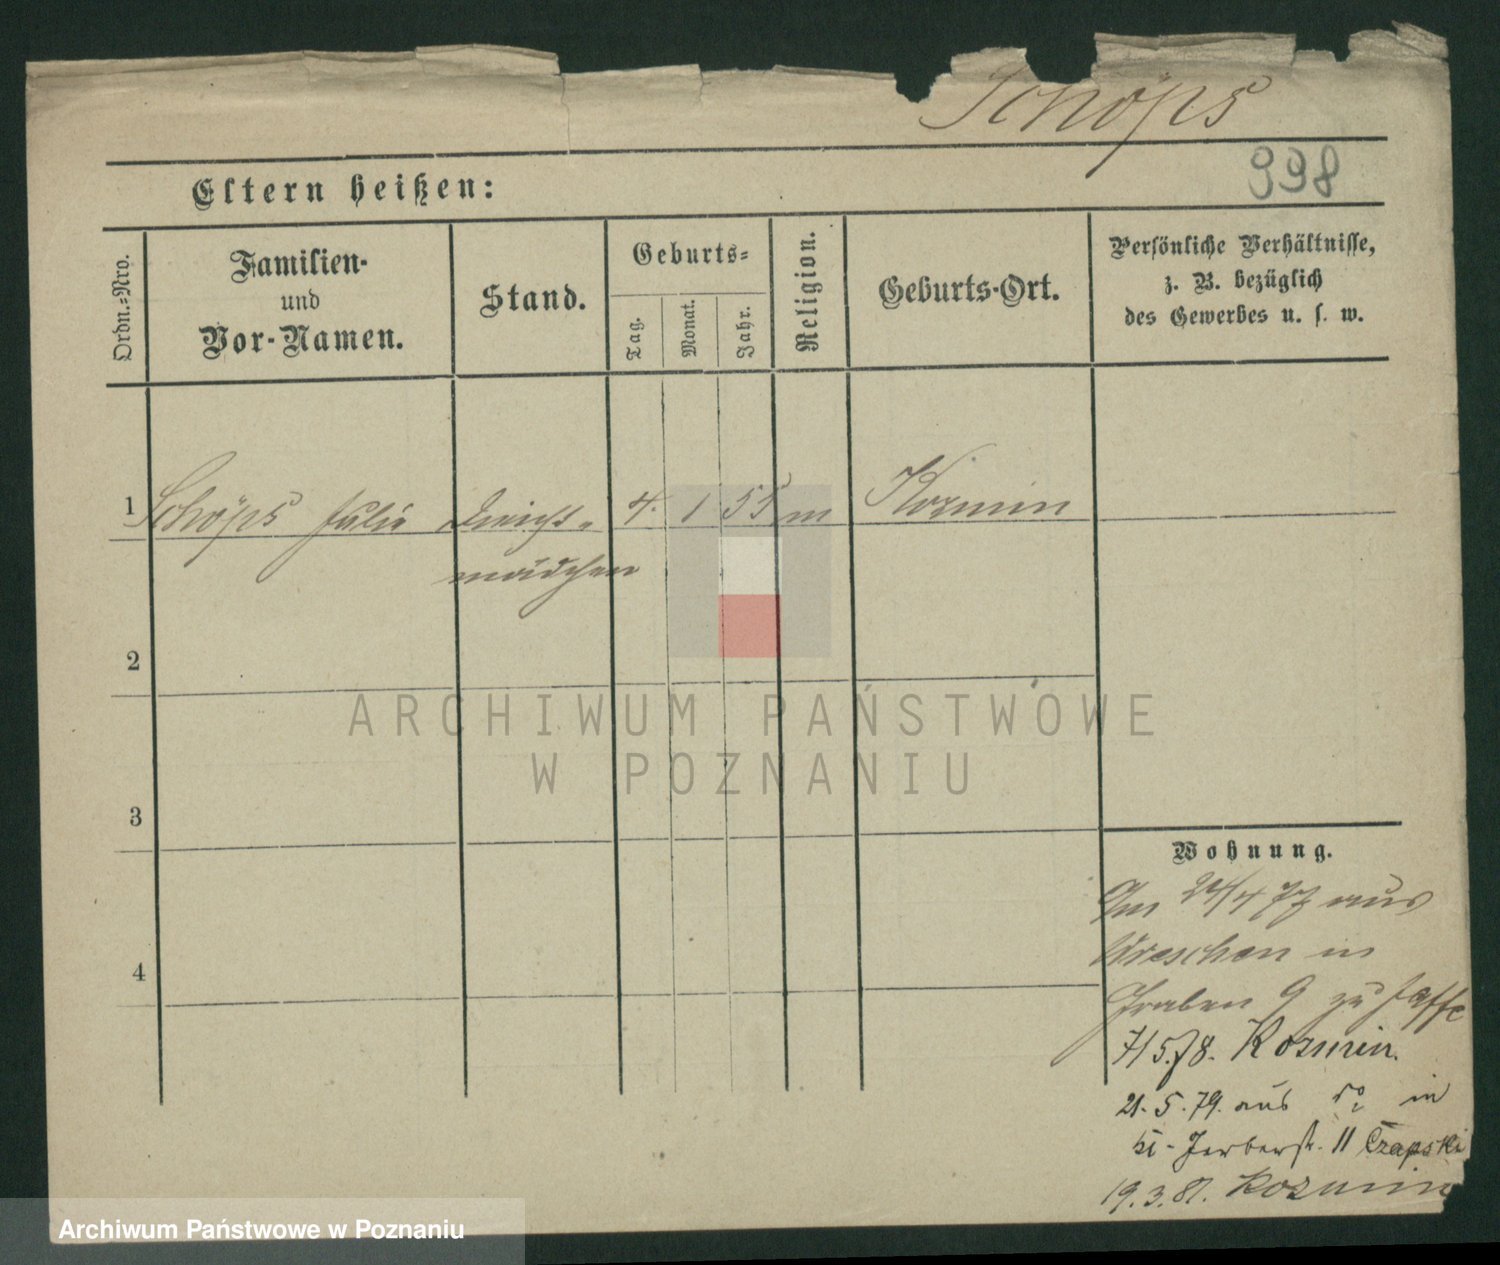 Schöps
998
Eltern heißen:
Ordn.-Nro.
Familien-
und
Vor-Namen.
Stand.
Geburts-
Tag.
Monat.
Jahr.
Religion.
Geburts-Ort.
Persönliche Verhältnisse,
z. B. bezüglich
des Gewerbes u. s. w.
1 Schöps Julie Dienst- 4. 1 55 m Kozmin
mädchen
2
3
4
Wohnung.
Am 24/4 77 aus
Wreschen in
Graben 9 zu Jaffe
7/5.78. Kozmin.
21. 5. 79. aus do in
kl. Gerberstr. 11 Czapski
19. 3. 81. Kozmin
ARCHIWUM PAŃSTWOWE
W POZNANIU
Archiwum Państwowe w Poznaniu